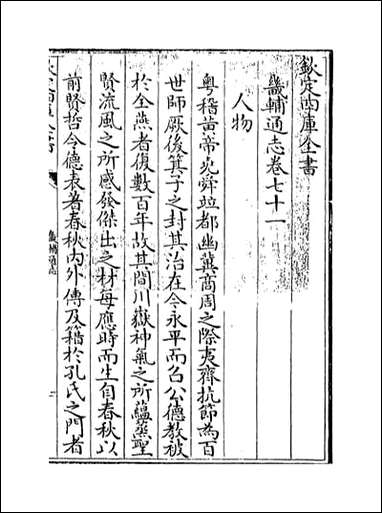 欽定四庫全書
畿輔通志卷七十一
人物
粤稽黄帝堯舜竝都幽冀商周之際夷齊抗節為百
世師厥後箕子之封其治在今永平而召公德教被
於全燕者復數百年故其間川嶽神氣之所蘊蒸聖
賢流風之所感發傑出之材每應時而生自春秋以
前賢哲令德表著春秋内外傳及籍於孔氏之門者
畿輔通志